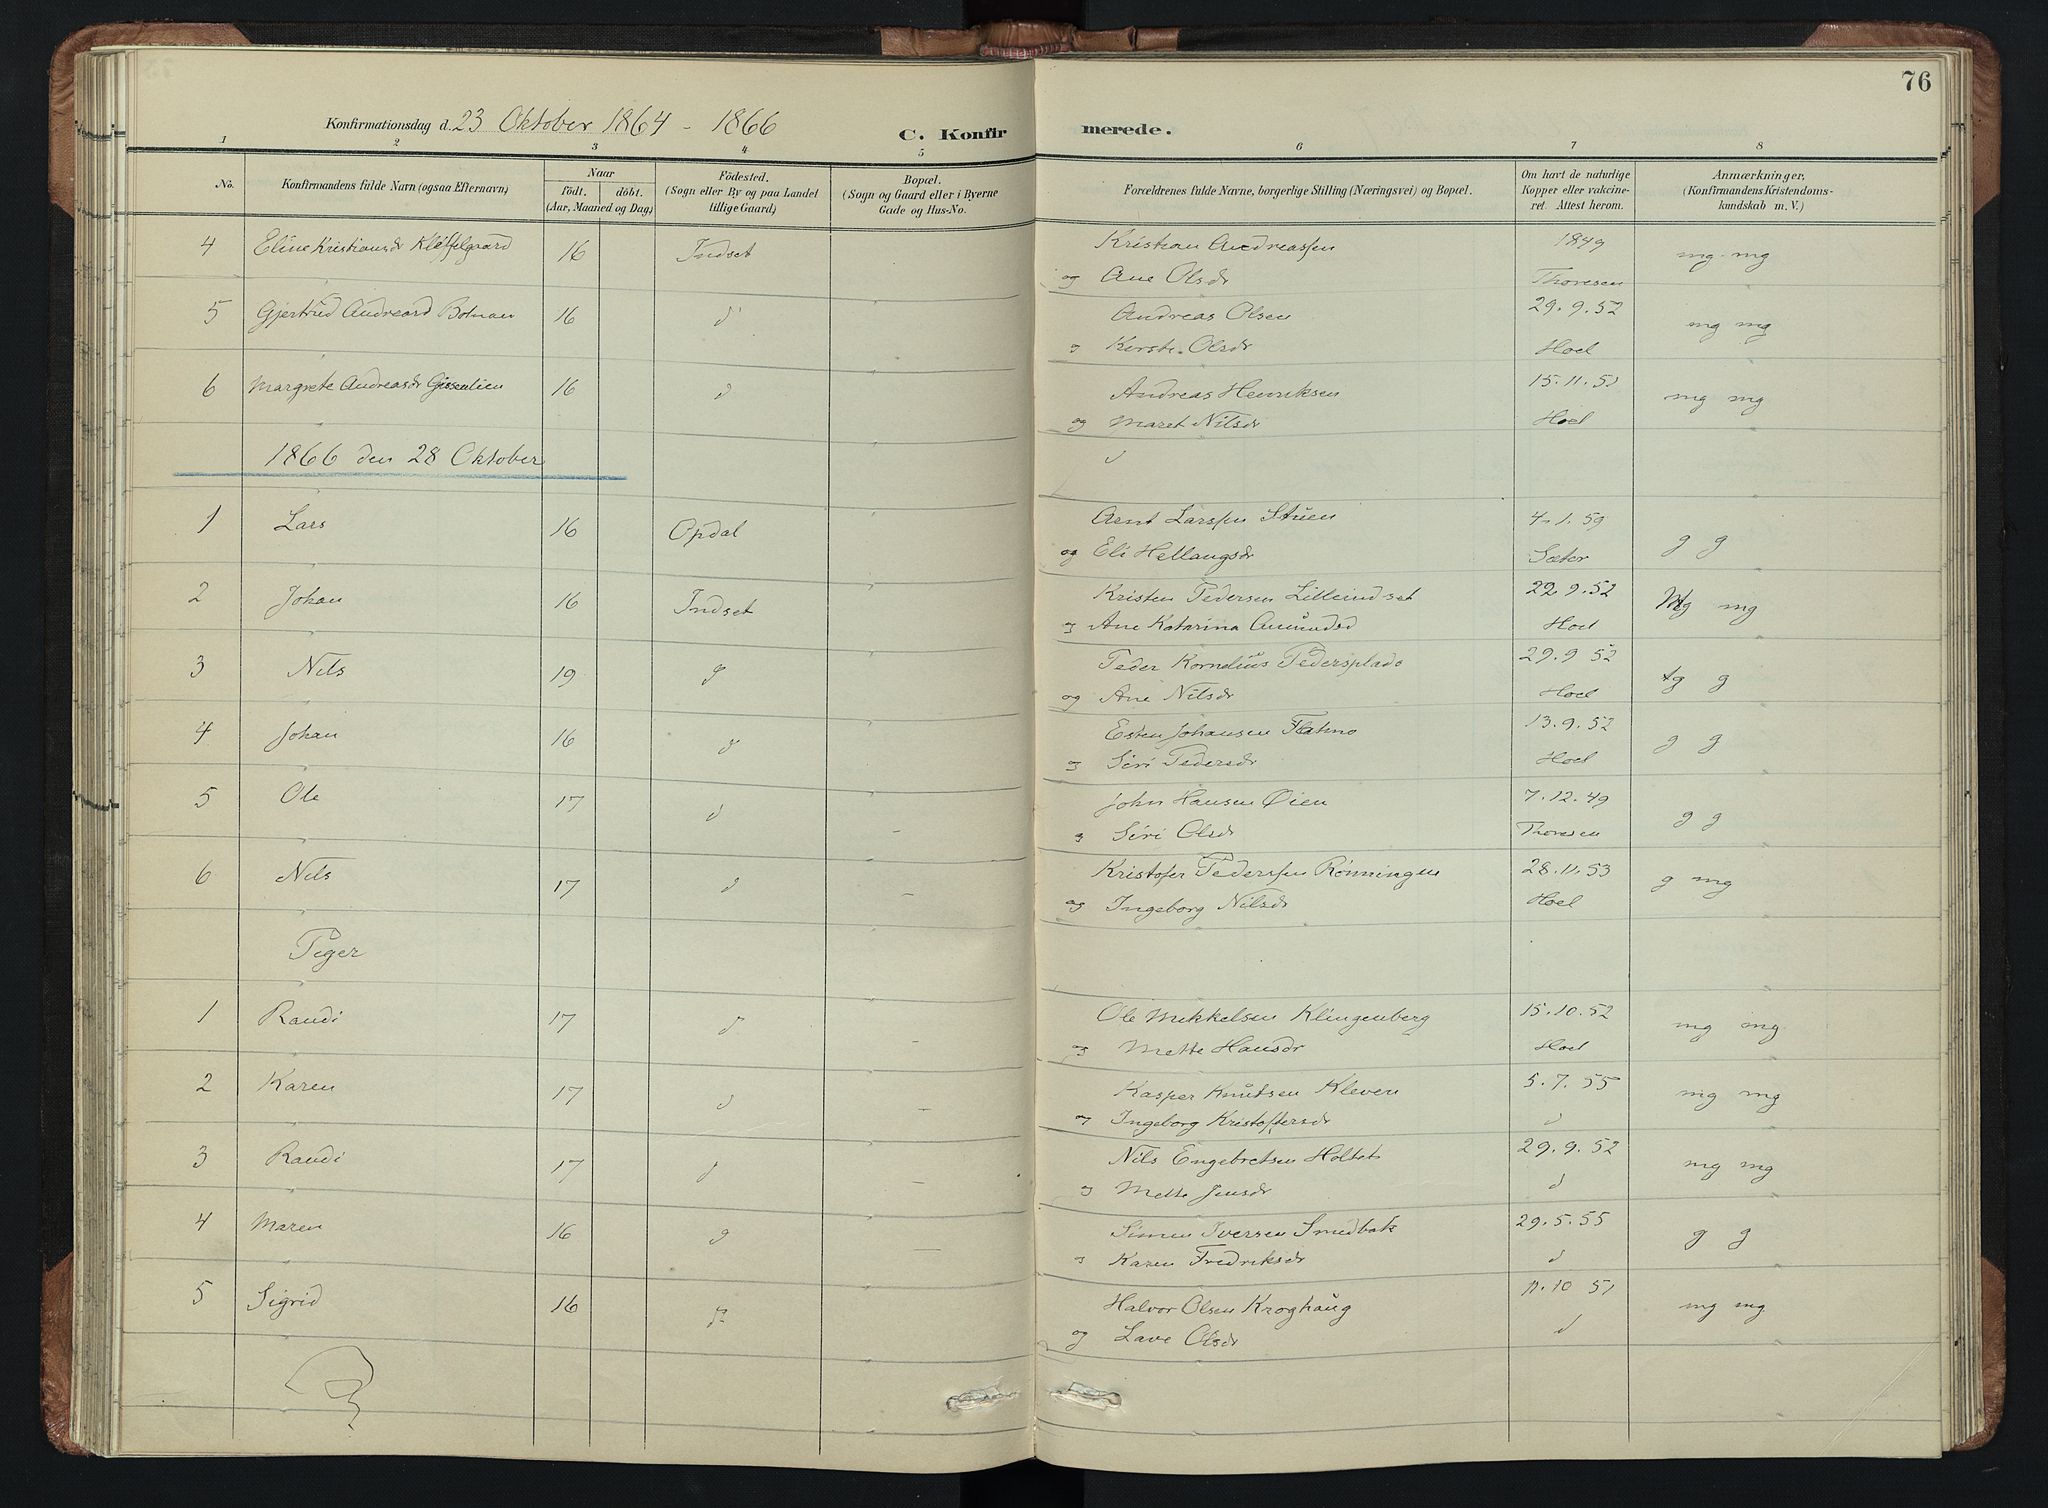 76
Konfirmationsdag d. 23 Oktober 1864 - 1866 C. Konfirmerede.
1 2 3 4 5 6 7 8
No.
Konfirmandens fulde Navn (ogsaa Efternavn)
Naar
födt. döbt.
(Aar, Maaned og Dag)
Födested.
(Sogn eller By og paa Landet
tillige Gaard)
Bopæl.
(Sogn og Gaard eller i Byerne
Gade og Hus-No.
Forældrenes fulde Navne, borgerlige Stilling (Næringsvei) og Bopæl.
Om havt de naturlige
Kopper eller vakcine-
ret. Attest herom.
Anmærkninger,
(Konfirmandens Kristendoms-
kundskab m. V.)
4 Eline Kristiansdr Kløffelgaard 16 Indset Kristian Andreassen 1849 mg mg
og Ane Olsdr Thoresen
5 Gjertrud Andreasd Botnan 16 d Andreas Olsen 29.9.52 mg mg
og Kerste Olsdr Hoel
6 Margrete Andreasdr Gissenlien 16 d Andreas Henriksen 15.11.51 mg mg
og Maret Nilsdr Hoel
1866 den 28 Oktober d
1 Lars 16 Opdal Arnt Larssen Stuen 4.1.59 g g
og Eli Hellangsdr Sæter
2 Johan 16 Indset Kristen Pedersen Lilleindset 29.9.52 Mg mg
og Ane Katarina Amundsd Hoel
3 Nils 19 d Peder Kornelius Pedersplads 29.9 52 tg g
og Ane Nilsdr Hoel
4 Johan 16 d Esten Johansen Flatmo 13.9.52 g g
og Siri Pedersdr Hoel
5 Ole 17 d - John Hansen Øien 7.12.49 g g
og Siri Olsdr Thoresen
6 Nils 17 d - Kristofer Pederssen Rønningen 28.11.53 g mg
og Ingeborg Nilsdr Hoel
Piger
1 Randi 17 d - Ole Mikkelsen Klingenberg 15.10.52 mg mg
og Mette Hansdr Hoel
2 Karen 17 d - Kasper Knutsen Kleven 5.7.55 mg mg
og Ingeborg Kristoffersdr d
3 Randi 17 d - Nils Engebretsen Holtet 29.9.52 mg mg
og Mette Jensdr d
4 Maren 16 d - Simen Iversen Smedbak 29.5.55 g g
og Karen Fredriksdr d
5 Sigrid 16 d Halvor Olsen Kroghaug 11.10 51 mg mg
og Lave Olsdr d